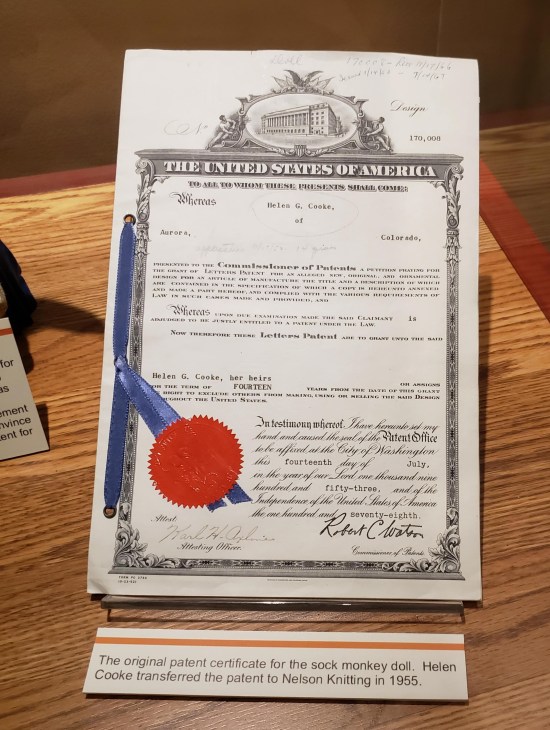 Design
170,000
THE UNITED STATES OF AMERICA
TO ALL TO WHOM THESE PRESENTS SHALL COME:
Whereas Helen G. Cooke,
of
Aurora, Colorado,
PRESENTED TO THE Commissioner of Patents A PETITION PRAYING FOR
THE GRANT OF LETTERS PATENT FOR AN ALLEGED NEW, ORIGINAL, AND ORNAMENTAL
DESIGN FOR AN ARTICLE OF MANUFACTURE THE TITLE AND A DESCRIPTION OF WHICH
ARE CONTAINED IN THE SPECIFICATION OF WHICH A COPY IS HEREUNTO ANNEXED
AND MADE A PART HEREOF, AND COMPLIED WITH THE VARIOUS REQUIREMENTS OF
LAW IN SUCH CASES MADE AND PROVIDED, AND
Whereas UPON DUE EXAMINATION MADE THE SAID CLAIMANT is
ADJUDGED TO BE JUSTLY ENTITLED TO A PATENT UNDER THE LAW.
NOW THEREFORE THESE Letters Patent ARE TO GRANT UNTO THE SAID
Helen G. Cooke, her heirs OR ASSIGNS
FOR THE TERM OF FOURTEEN YEARS FROM THE DATE OF THIS GRANT
RIGHT TO EXCLUDE OTHERS FROM MAKING, USING OR SELLING THE SAID DESIGN
THROUGHOUT THE UNITED STATES.
In testimony whereof, I have hereunto set my
hand and caused the seal of the Patent Office
to be affixed at the City of Washington
this fourteenth day of July,
in the year of our Lord one thousand nine
hundred and fifty-three, and of the
Independence of the United States of America
the one hundred and seventy-eighth.
Attest:
Attesting Officer.
Robert C. Watson
Commissioner of Patents.
The original patent certificate for the sock monkey doll. Helen
Cooke transferred the patent to Nelson Knitting in 1955.
for
as
ement
nvince
ent for